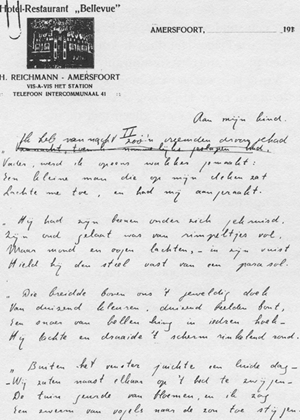 Hotel-Restaurant „Bellevue"
AMERSFOORT, 191
H. REICHMANN - AMERSFOORT
VIS-A-VIS HET STATION
TELEFOON INTERCOMMUNAAL 41
Aan mijn kind.
II
„Ik heb vannacht zoo'n vreemden droom gehad
Vader, werd ik opeens wakker gemaakt:
Een kleine man die op mijn deken zat
Lachte me toe, en had mij aangeraakt.
„Hij had zijn beenen onder zich gekruisd.
Zijn oud gelaat was van rimpeltjes vol,
Maar mond en oogen lachten, – in zijn vuist
Hield hij den steel vast van een parasol.
„Die breidde boven ons 't geweldig doek
Van duizend kleuren, duizend beelden bont,
Een snoer van bellen hing in iedren hoek –
Hij lachte en draaide 't scherm rinkelend rond.
„Buiten het venster juichte een luide dag –
– Wij zaten naast elkaar op 't bed te
De tuin geurde van bloemen, en ik zag
Een zwerm van vogels naar de zon toe stijgen